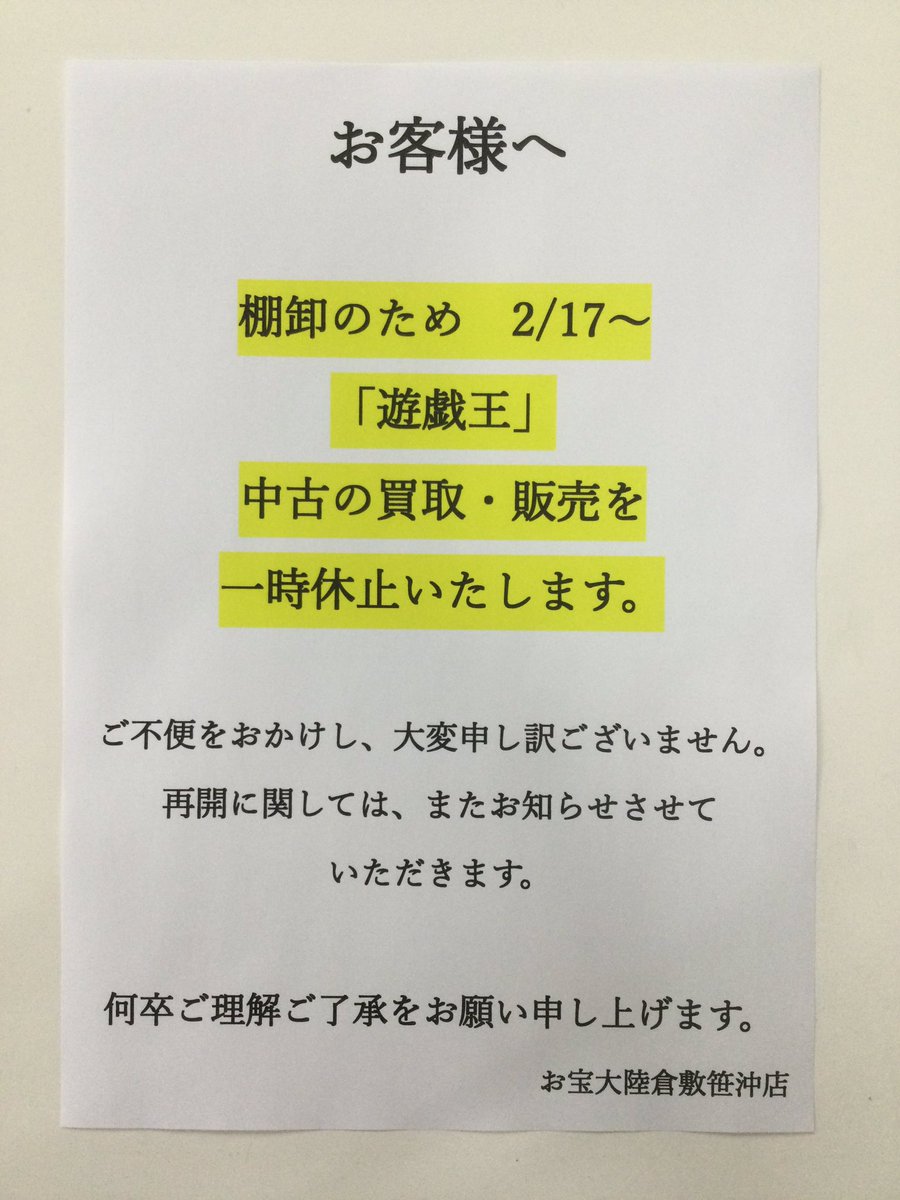 お客様へ
棚卸のため　2/17～
「遊戯王」
中古の買取・販売を
一時休止いたします。
ご不便をおかけし、大変申し訳ございません。
再開に関しては、またお知らせさせて
いただきます。
何卒ご理解ご了承をお願い申し上げます。
お宝大陸倉敷笹沖店